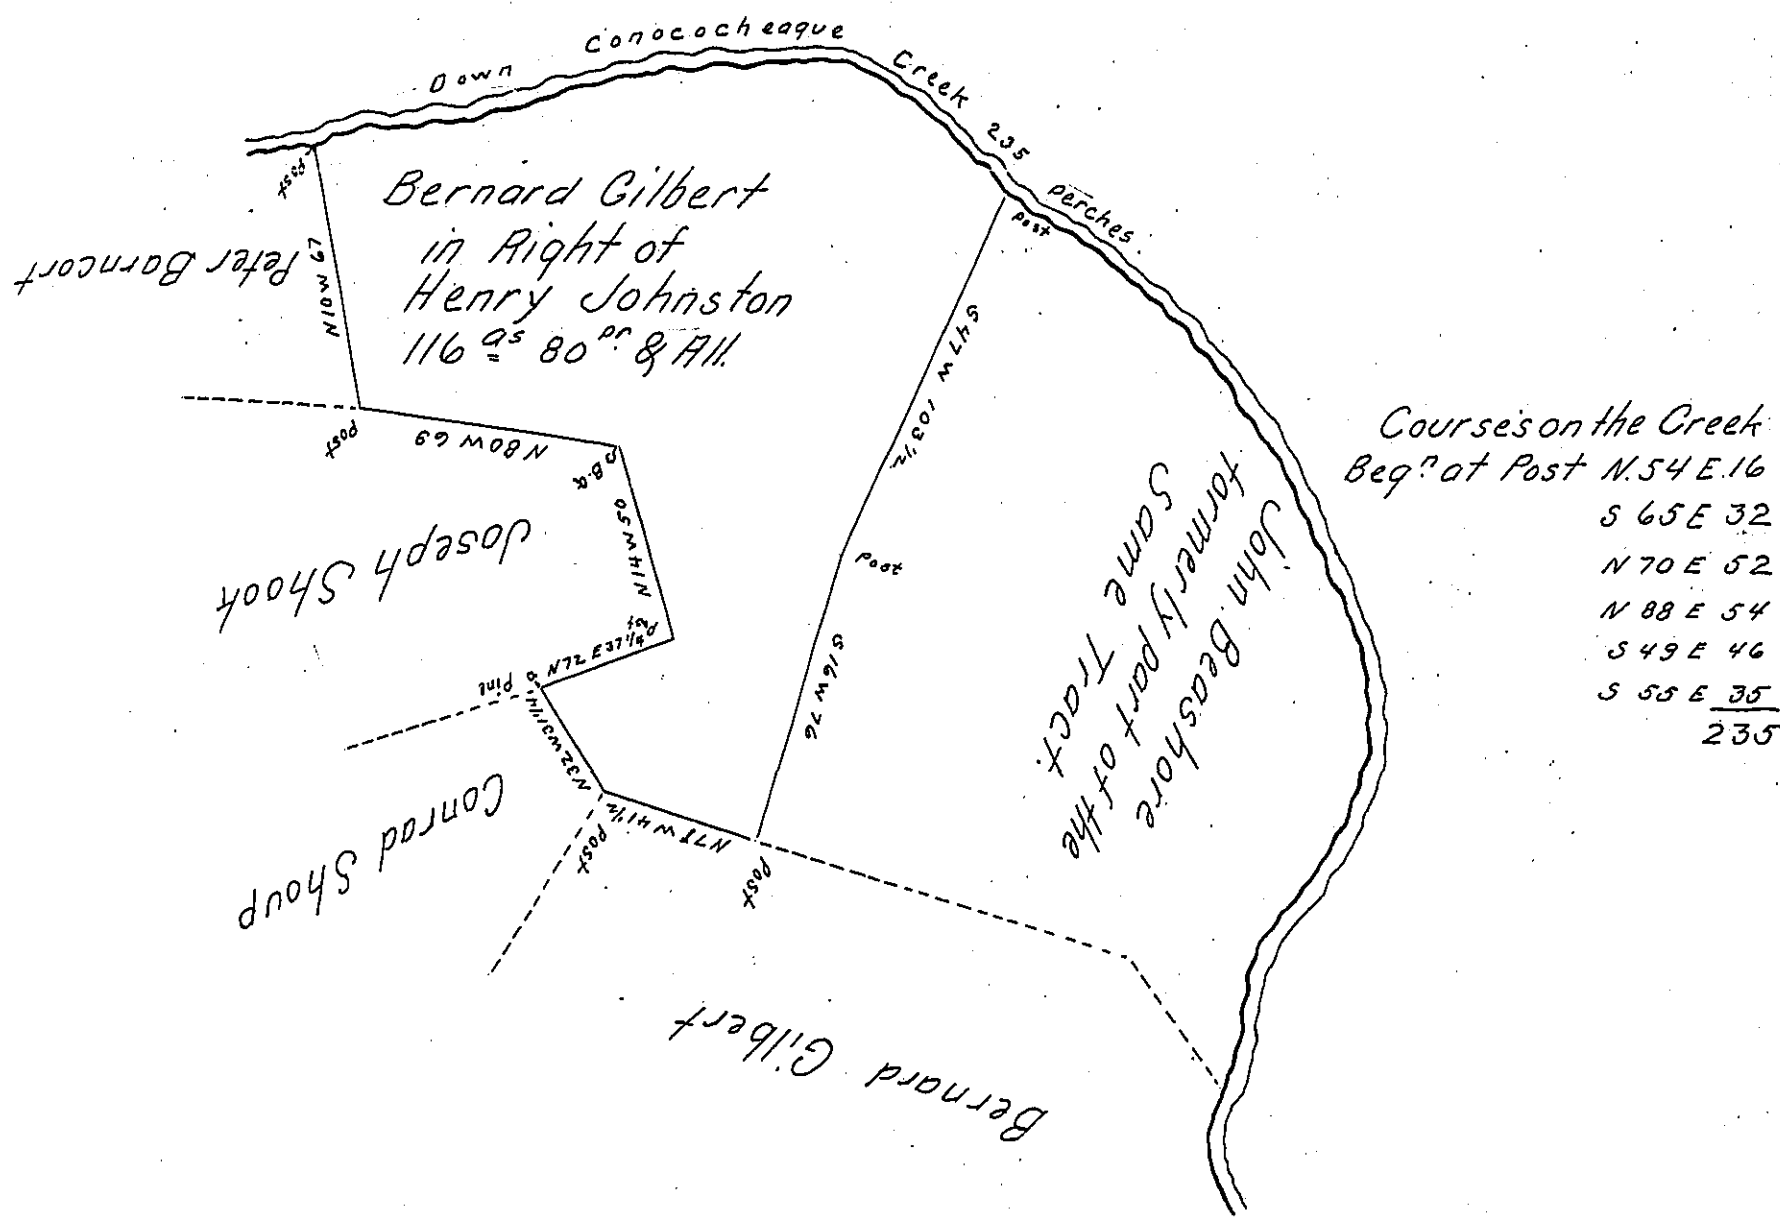 Down Conococheaque Creek 235 perches
Post
Bernard Gilbert
in Right of
Henry Johnston
116 as 80 pr. & All.
Peter Barncort
N10W 67
Post
N80W 69
P B.a
N14W 50
Joseph Shook
Post
N72E 37 1/4
Pine
N32W 31 1/4
Conrad Shoup
Post
N78W 41 1/2
Post
post
S47W 103 1/2
post
S16W 76
John Beashore
formerly part of the
Same Tract.
Bernard Gilbert
Course's on the Creek
Beg.n at Post N.54 E.16
S 65 E 32
N 70 E 52
N 88 E 54
S 49 E 46
S 55 E 35
235